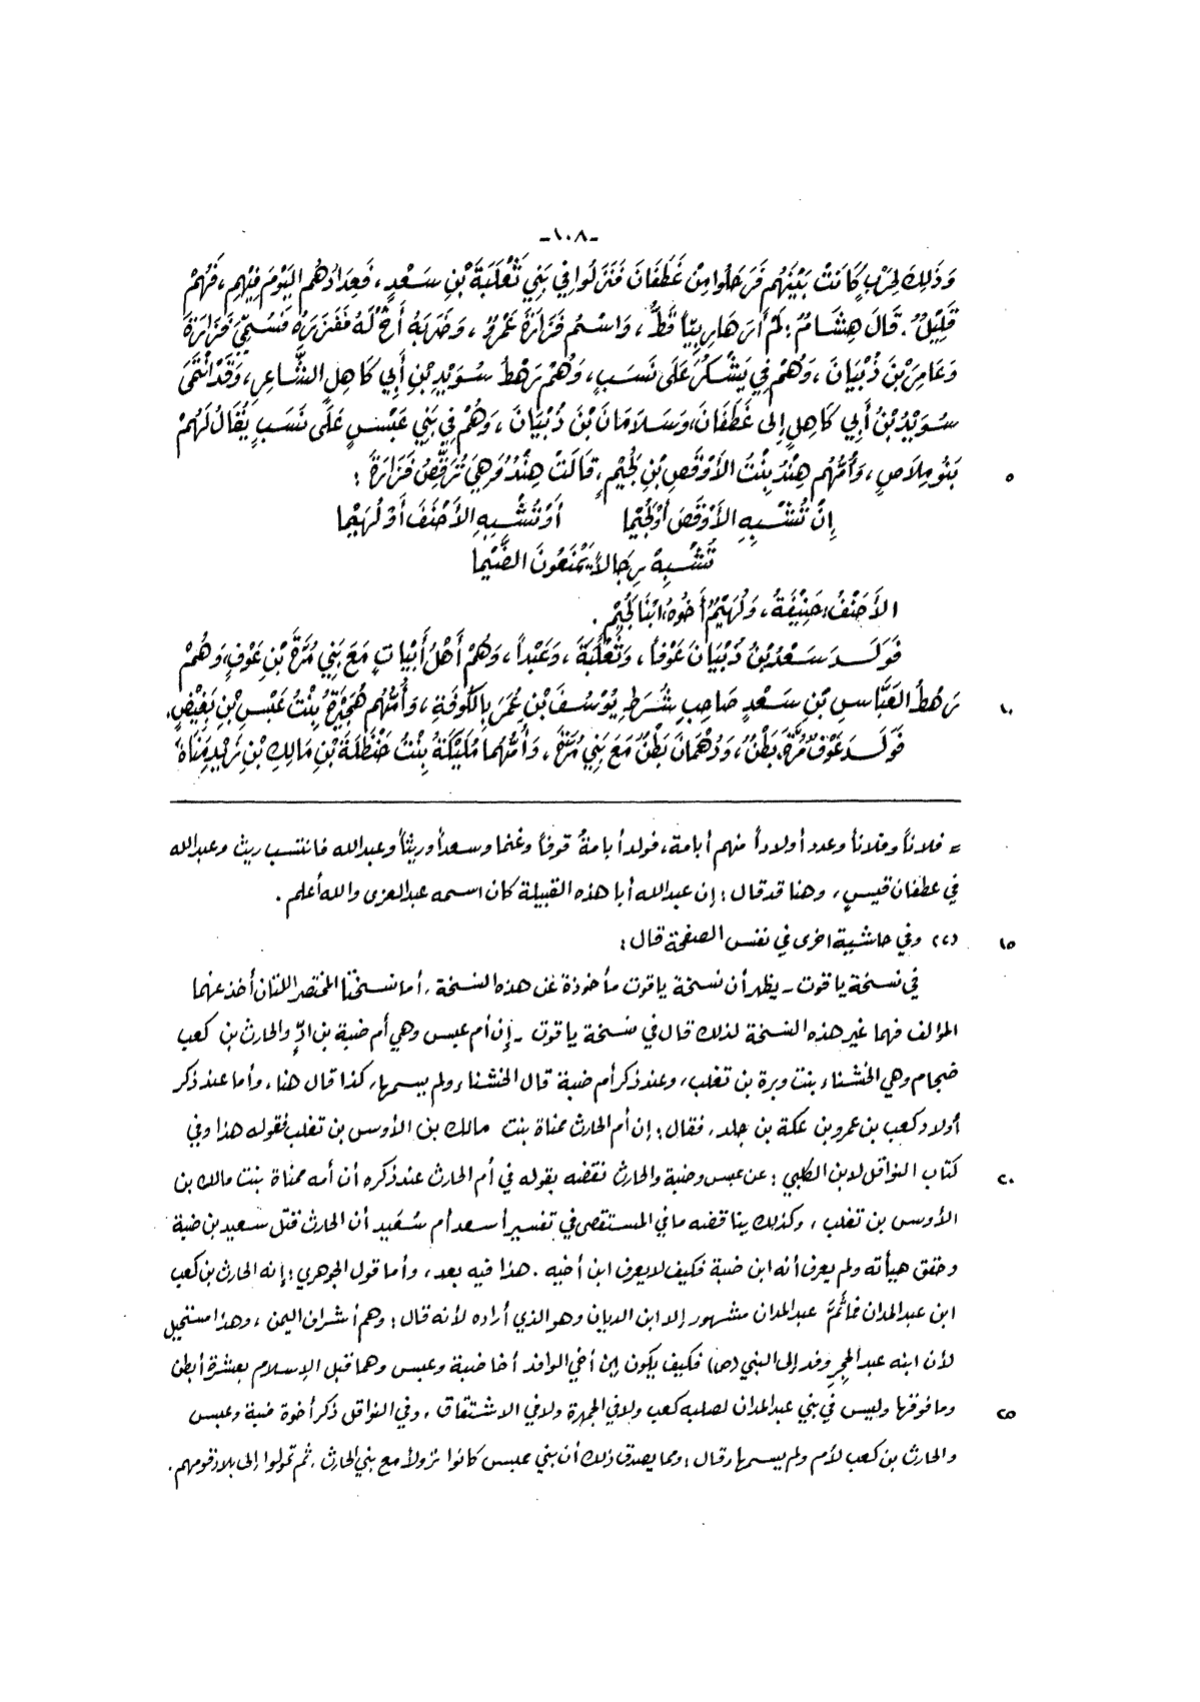 -١٠٨-
وَذَلِكَ لِحَرْبٍ كَانَتْ بَيْنَهُم فَرَحَلُوا مِنْ غَطَفَانَ فَنَزَلُوا فِي بَنِي ثَعْلَبَةَ بْنِ سَعْدٍ، فَعِدَادُهُم اليَوْمَ فِيْهِم، فَهُمْ
قَلِيْلٌ. قَالَ هِشَامٌ: لَمْ أَرَ هَارِبِيّاً قَطُّ، وَاسْمُ فَزَارَةَ عَمْرٌو، وَضَرَبَهُ أَخٌ لَهُ فَفَزَرَهُ فَسُمِّيَ فَزَارَةَ
وَعَامِرَ بْنَ ذُبْيَانَ، وَهُمْ فِي يَشْكُرَ عَلَى نَسَبٍ، وَهُمْ رَهْطُ سُوَيْدِ بْنِ أَبِي كَاهِلٍ الشَّاعِرِ، وَقَدْ انْتَمَى
سُوَيْدُ بْنُ أَبِي كَاهِلٍ إِلَى غَطَفَانَ، وَسَلَامَانَ بْنَ ذُبْيَانَ، وَهُمْ فِي بَنِي عَبْسٍ عَلَى نَسَبٍ يُقَالُ لَهُمْ
بَنُو مِلَاصٍ، وَأُمُّهُم هِنْدُ بِنْتُ الأَوْقَصِ بْنِ لُجَيْمٍ، قَالَتْ هِنْدُ وَهِيَ تُرَقِّصُ فَزَارَةَ: ٥
إِنْ تُشْبِهِ الأَوْقَصَ أَوْ لُجَيْمَا أَوْ تُشْبِهِ الأَحْنَفَ أَوْ لُهَيْمَا
تُشْبِهْ رِجَالاً يَمْنَعُونَ الضَّيْمَا
الأَحْنَفُ: حَنِيْفَةُ، وَلُهَيْمٌ أَخُوهُ، ابْنَا لُجَيْمٍ.
فَوَلَدَ سَعْدُ بْنُ ذُبْيَانَ عَوْفاً، وَثَعْلَبَةَ، وَعَبْداً، وَهُمْ أَهْلُ أَبْيَاتٍ مَعَ بَنِي مُرَّةَ بْنِ عَوْفٍ، وَهُمْ
رَهْطُ العَبَّاسِ بْنِ سَعْدٍ صَاحِبِ شُرَطِ يُوْسُفَ بْنِ عُمَرَ بِالكُوْفَةِ، وَأُمُّهُم هُجَيْرَةُ بِنْتُ عَبْسِ بْنِ بَغِيْضٍ. ١٠
فَوَلَدَ عَوْفٌ مُرَّةَ بَطْنٌ، وَدُهْمَانَ بَطْنٌ مَعَ بَنِي مُرَّةَ، وَأُمُّهُمَا مُلَيْكَةُ بِنْتُ حَنْظَلَةَ بْنِ مَالِكِ بْنِ زَيْدِ مَنَاةَ
= فلاناً وفلاناً وعدد أولاداً منهم أبامة، فولد أبامةُ قوفاً وغنما وسعداً وريثاً وعبدالله فانتسب ريث وعبدالله
في غطفان قيسٍ، وهنا قد قال: إن عبدالله أبا هذه القبيلة كان اسمه عبدالعزى والله أعلم.
(٢) وفي حاشية اخرى في نفس الصفحة قال: ١٥
في نسخة ياقوت - يظهر أن نسخة ياقوت مأخوذة عن هذه النسخة، أما نسختا المختصر اللتان أخذ عنهما
المؤلف فهما غير هذه النسخة لذلك قال في نسخة ياقوت - إن أم عبس وهي أم ضبة بن ادٍّ والحارث بن كعب
ضجام وهي الخشناء بنت وبرة بن تغلب، وعند ذكر أم ضبة قال الخشناء ولم يسمها، كذا قال هنا، وأما عند ذكر
أولاد كعب بن عمرو بن علة بن جلد، فقال: إن أم الحارث مماة بنت مالك بن الأوس بن تغلب فقوله هذا وفي
كتاب النواقل لابن الكلبي: عن عبس وضبة والحارث نقضه بقوله في أم الحارث عند ذكره أن أمه مماة بنت مالك بن ٢٠
الأوس بن تغلب، وكذلك يناقضه ما في المستقصى في تفسير أسعد أم سُعَيد أن الحارث قتل سعيد بن ضبة
وحقق هيأته ولم يعرف أنه ابن ضبة فكيف لا يعرف ابن أخيه. هذا فيه بعد، وأما قول الجوهري: إنه الحارث بن كعب
ابن عبدالمدان فما ثُمَّ عبدالمدان مشهور إلا ابن الديان وهو الذي أراده لأنه قال: وهم أشراف اليمن، وهذا مستحيل
لأن ابنه عبدالحِجرِ وفد إلى النبي (ص) فكيف يكون ابن أخي الوافد أخا ضبة وعبس وهما قبل الإسلام بعشرة أبطن
وما فوقها وليس في بني عبدالمدان لصلبه كعب ولا في الجمهرة ولا في الاشتقاق، وفي النواقل ذكر أخوة ضبة وعبس ٢٥
والحارث بن كعب لأم ولم يسمها وقال: ومما يصدق ذلك أن بني عبس كانوا نزولاً مع بني الحارث، ثم تحولوا إلى بلاد قومهم.